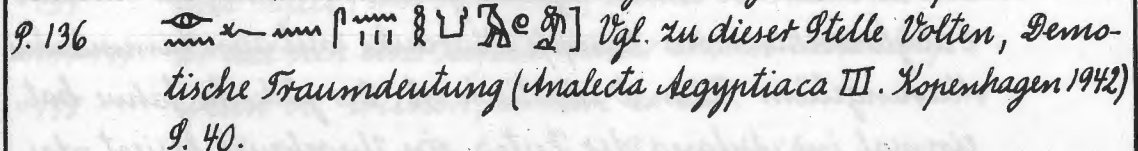 S. 136 𓁹𓈖𓆑𓈖𓋴𓈖𓏥𓎛𓂓𓄿𓏲𓀁] Vgl. zu dieser Stelle Volten, Demo-
tische Traumdeutung (Analecta Aegyptiaca III. Kopenhagen 1942)
S. 40.